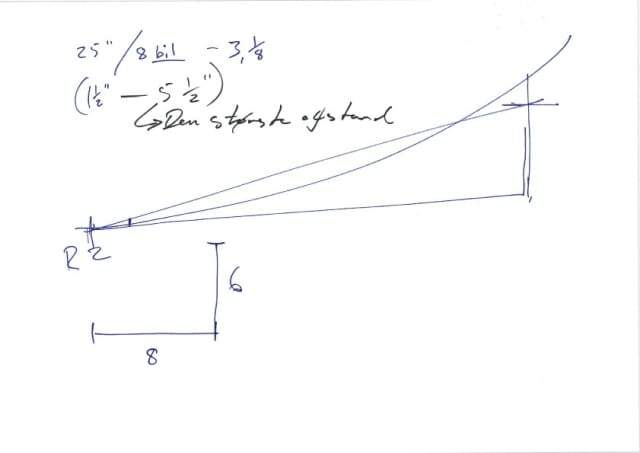 25" / 8 bil - 3,⅛
(1½" - 5½")
↳ Den største afstand
R2
6
8